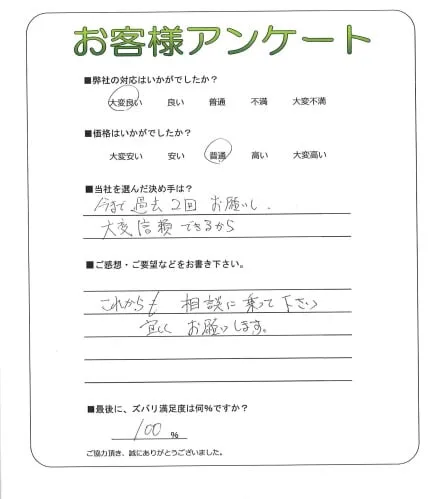 お客様アンケート
■弊社の対応はいかがでしたか?
大変良い 良い 普通 不満 大変不満
■価格はいかがでしたか?
大変安い 安い 普通 高い 大変高い
■当社を選んだ決め手は?
今まで過去2回お願いし、
大変信頼できるから
■ご感想・ご要望などをお書き下さい。
これからも 相談に乗って下さい
宜しく お願いします。
■最後に、ズバリ満足度は何%ですか?
100 %
ご協力頂き、誠にありがとうございました。